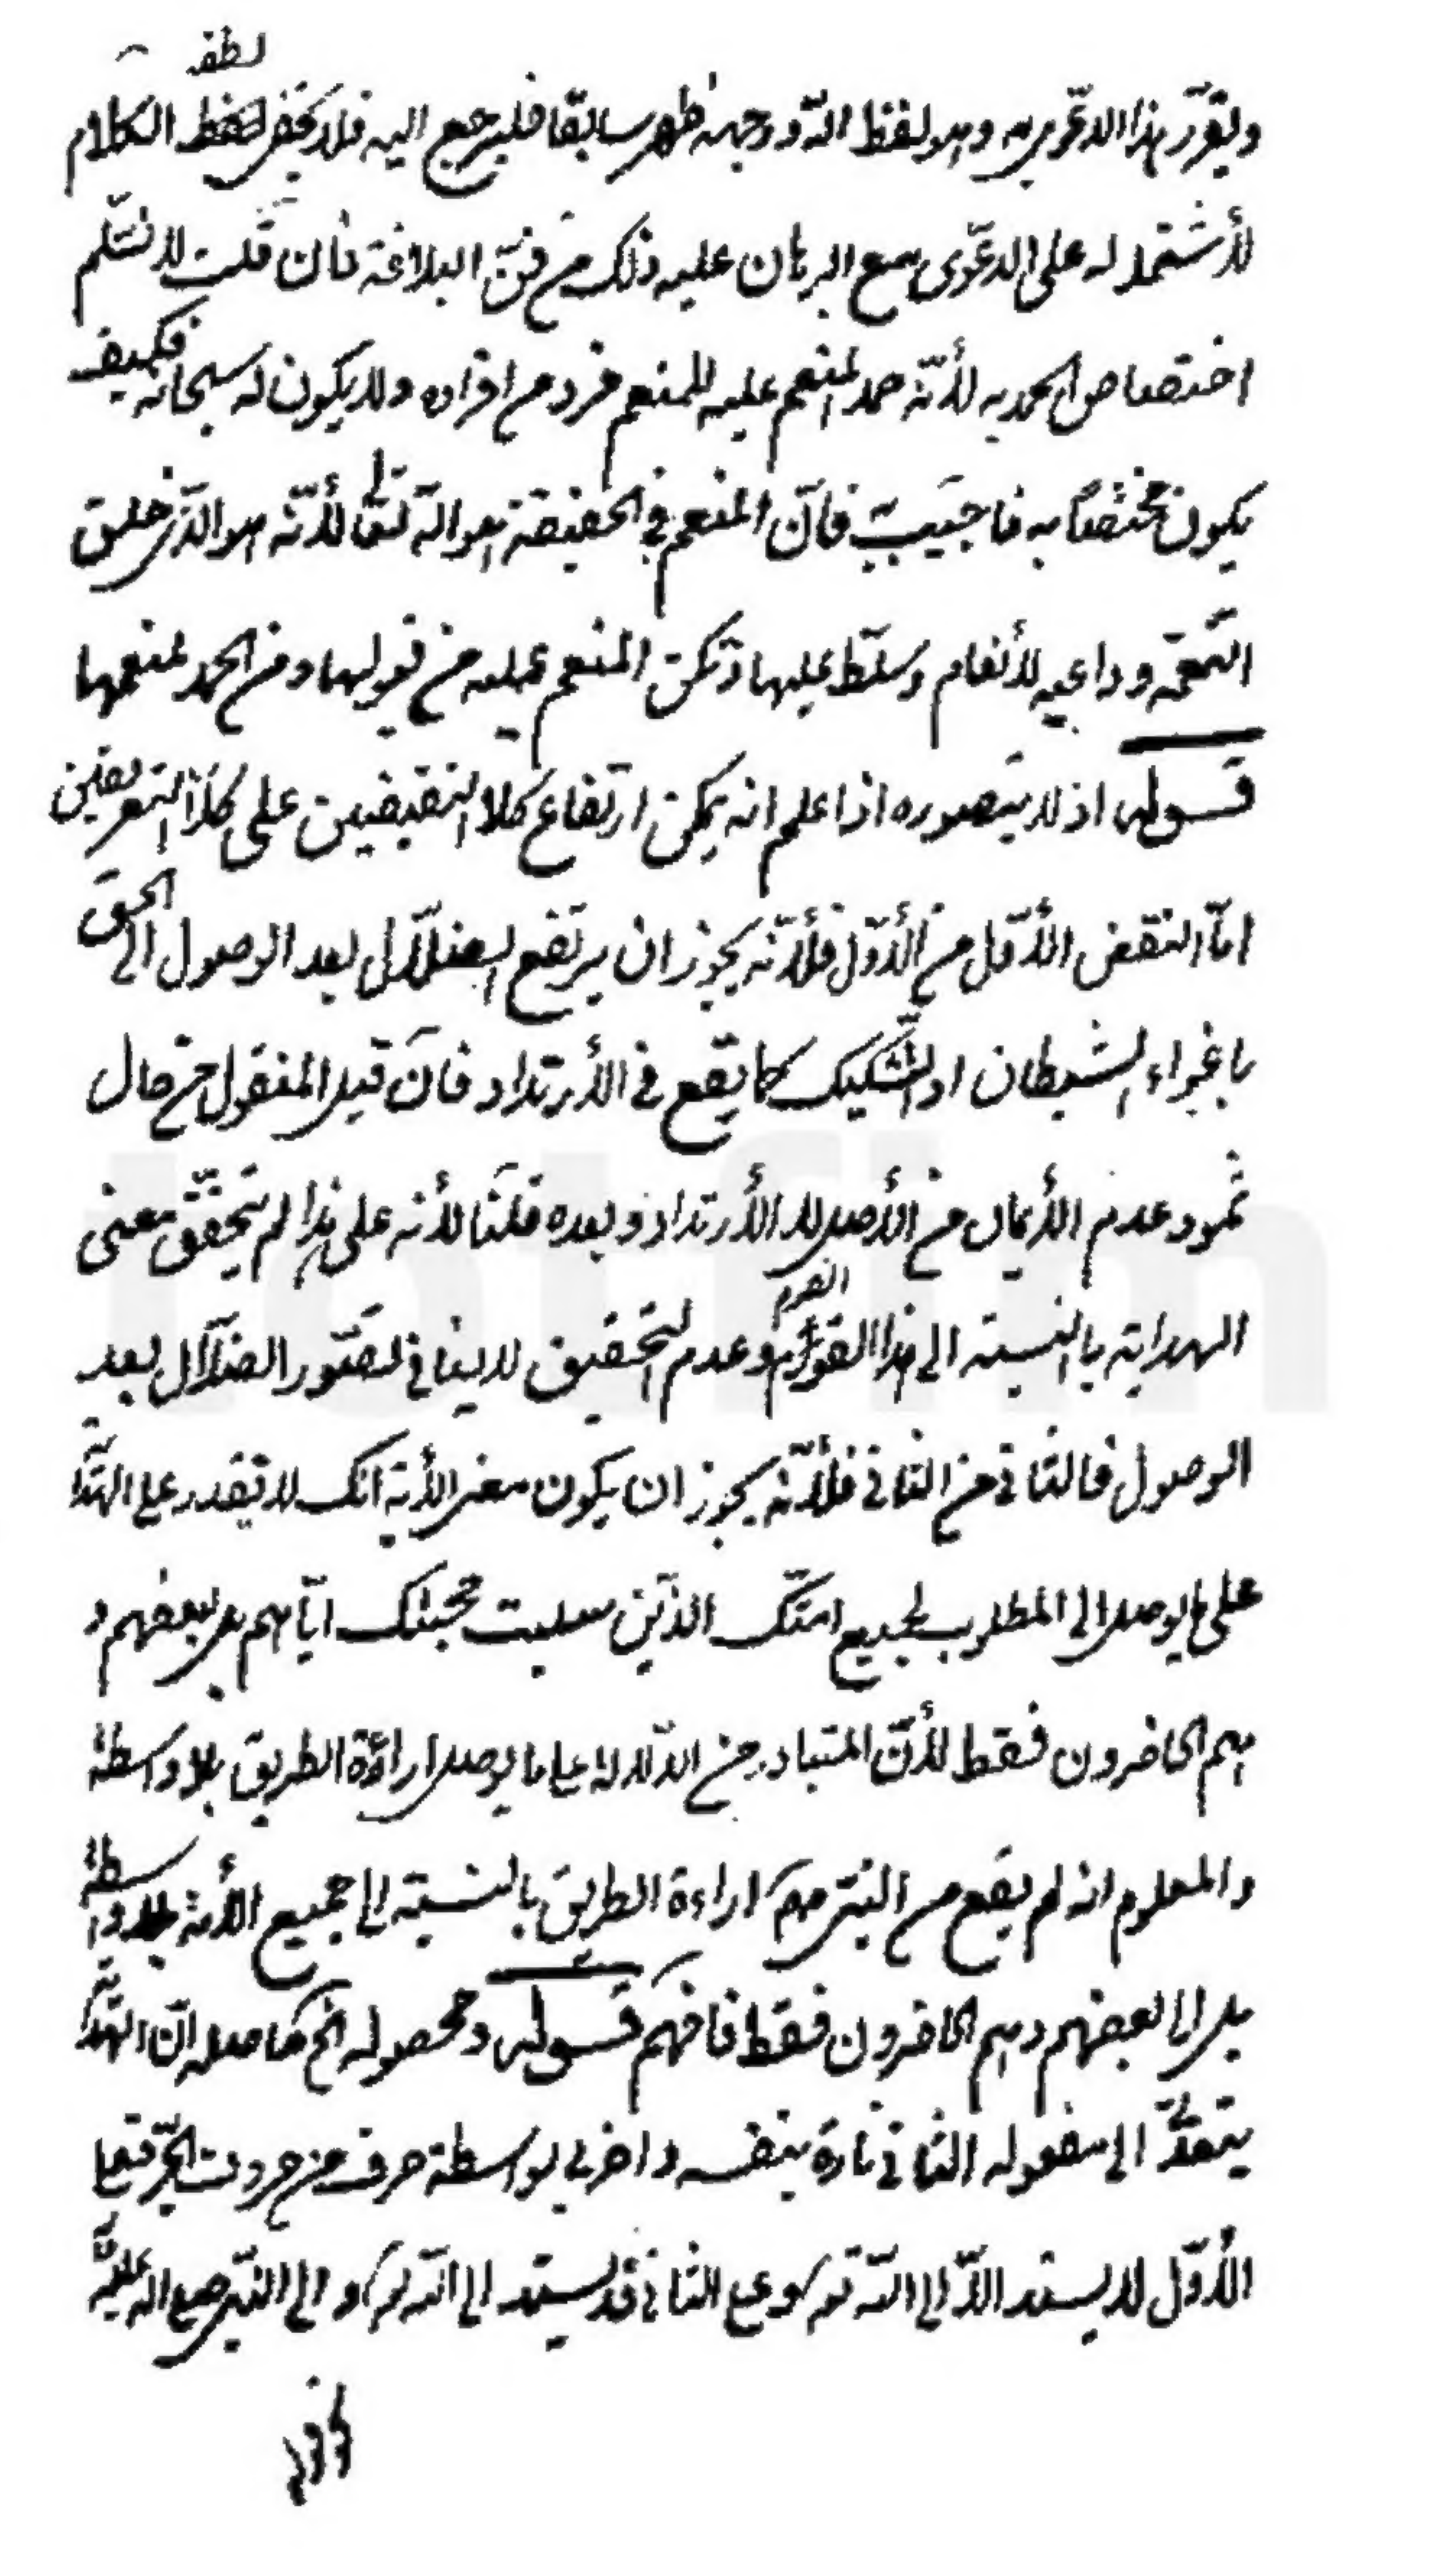 لطف
ويقرّر هذا الدعوى به وهو لفظ الله ووجهه ظهر سابقا فليرجع اليه فلا يخفى لفظ الكلام
لأشتماله على الدعوى مع البرهان عليه ذلك من فنّ البلاغة فان قلت لا نسلم
اختصاص الحمد به لأنّه حمد المنعم عليه للمنعم فرد من افراده ولا يكون له سبحانه فكيف
يكون مختصّا به فاجيب فانّ المنعم في الحقيقة هو الله تعالى لأنّه هو الذي خلق
النعمة وداعيه للأنعام وسلّط عليها وتمكن المنعم عليه من قبولها ومن الحمد لمنعمها
قوله اذ لا يتصوره اذا علم انه يمكن ارتفاع كلا النقيضين على كلا التعريفين
امّا النقض الأول من الأوّل فلأنّه يجوز ان يرتفع الضلال بعد الوصول الى الحق
باغواء الشيطان او التشكيك كما يقع في الأرتداد فانّ قيل المنقول من حال
ثمود عدم الأيمان من الأصل لا الأرتداد وبعده قلنا لأنه على هذا لم يتحقّق معنى
الهداية بالنسبة الى هذا القوم وعدم التحقيق لا ينافي تصوّر الضلال بعد
الوصول فالثاني من الثاني فلأنّه يجوز ان يكون معنى الأية انك لا تقدر على الهداية
على ما يوصل الى المطلوب لجميع امتك الذين سلبت محبتك ايّاهم بل بعضهم و
هم الحاضرون فقط لأنّ المتبادر من الدّلالة على ما يوصل اراءة الطريق بلا واسطة
والمعلوم انه لم يقع من النبي اراءة الطريق بالنسبة الى جميع الأمة بلا واسطة
بل الى بعضهم وهم الحاضرون فقط فافهم قوله ومحصوله الخ حاصله انّ الهداية
يتعدّى الى مفعوله الثاني تارة بنفسه واخرى بواسطة حرف من حروف الجرّ فعلى
الأوّل لا يسند الّا الى الله وعلى الثاني قد يسند الى الله او الى النبي صلى الله عليه